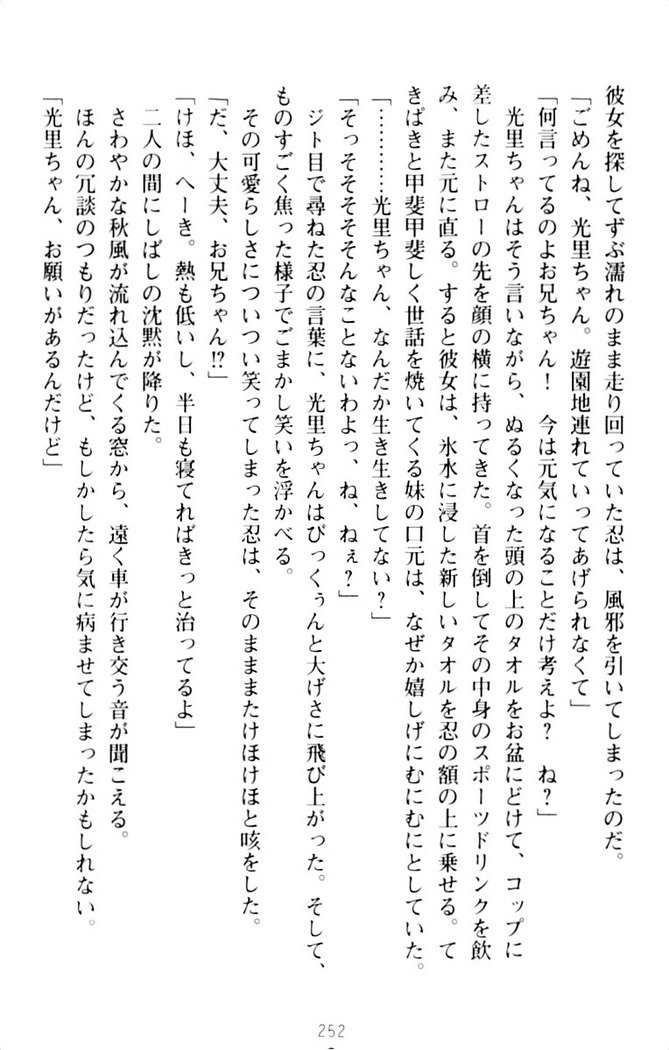 彼女を探してずぶ濡れのまま走り回っていた忍は、風邪を引いてしまったのだ。
「ごめんね、光里ちゃん。遊園地連れていってあげられなくて」
「何言ってるのよお兄ちゃん！　今は元気になることだけ考えよ？　ね？」
　光里ちゃんはそう言いながら、ぬるくなった頭の上のタオルをお盆にどけて、コップに
差したストローの先を顔の横に持ってきた。首を倒してその中身のスポーツドリンクを飲
み、また元に直る。すると彼女は、氷水に浸した新しいタオルを忍の額の上に乗せる。て
きぱきと甲斐甲斐しく世話を焼いてくる妹の口元は、なぜか嬉しげにむにむにとしていた。
「…………光里ちゃん、なんだか生き生きしてない？」
「そっそそそそんなことないわよっ、ね、ねぇ？」
　ジト目で尋ねた忍の言葉に、光里ちゃんはびっくぅんと大げさに飛び上がった。そして、
ものすごく焦った様子でごまかし笑いを浮かべる。
　その可愛らしさについつい笑ってしまった忍は、そのまままたけほけほと咳をした。
「だ、大丈夫、お兄ちゃん!?」
「けほ、へーき。熱も低いし、半日も寝てればきっと治ってるよ」
　二人の間にしばしの沈黙が降りた。
　さわやかな秋風が流れ込んでくる窓から、遠く車が行き交う音が聞こえる。
　ほんの冗談のつもりだったけど、もしかしたら気に病ませてしまったかもしれない。
「光里ちゃん、お願いがあるんだけど」
252